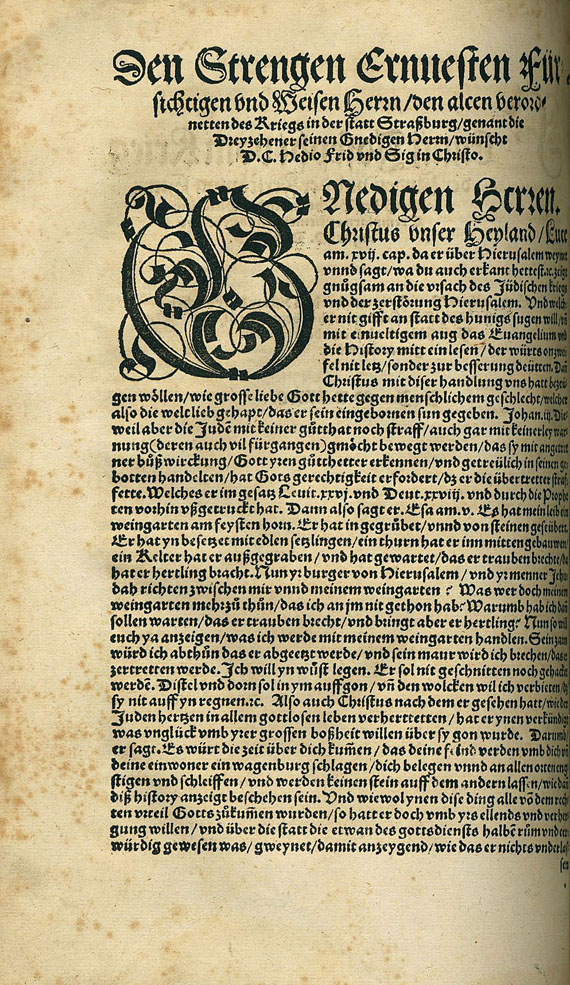 Den Strengen Ernuesten Für
sichtigen vnd Weisen Herrn/den alten veror⸗
netten des Kriegs in der statt Straßburg/genant die
Dreyzehener seinen Gnedigen Herrn/wünscht
D.C. Hedio Frid vnd Sig in Christo.
GNedigen Herren.
Christus vnser Heyland/Luce
am. xvij. cap. da er über Hierusalem weynet
vnnd sagt/wa du auch erkant hettest.⁊c. zeigt
gnůgsam an die vrsach des Jüdischen kriegs
vnd der zerstörung Hierusalem. Vnd welch
er nit gifft an statt des hunigs sugen will/
mit einueltigem aug das Euangelium vnd
die History mitt ein lesen/der würts on zwei
fel nit letz/sonder zur besserung deütten.
Christus mit diser handlung vns hatt
gen wöllen/wie grosse liebe Gott hette gegen menschlichem geschlecht/welcher
also die welt lieb gehapt/das er sein eingebornen sun gegeben. Johan.iij. Die
weil aber die Judē mit keiner gůtthat noch straff/auch gar mit keinerley war
nung(deren auch vil fürgangen)gmöcht bewegt werden/das sy mit
ner bůßwirckung/Gott yren gůtthetter erkennen/vnd getreülich in seinen ge
botten handelten/hat Gots gerechtigkeit erfordert/dz er die übertretter straf
fette. Welches er im gesatz Leuit.xxvj. vnd Deut.xxviij. vnd durch die Prophe
ten vorhin vßgetruckt hat. Dann also sagt er. Esa am. v. Es hat mein lieb ein
weingarten am feysten horn. Er hat in gegrůbet/vnnd von steinen gestübert.
Er hat yn besetzt mit edlen setzlingen/ein thurn hat er inn mitten gebauwen/
ein Kelter hat er außgegraben/vnd hat gewartet/das er trauben brechte/
hat er hertling bracht. Nun yr burger von Hierusalem/vnd yr menner Jehu
dah richten zwischen mir vnnd meinem weingarten? Was wer doch meinem
weingarten mehr zů thůn/das ich an jm nit gethon hab? Warumb hab ich
sollen warten/das er trauben brecht/vnd bringt aber er hertling? Nun so will
euch ya anzeigen/was ich werde mit meinem weingarten handlen. Sein zaun
würd ich abthůn das er abgeetzt werde/vnd sein maur wird ich brechen/das er
zertretten werde. Ich will yn wůst legen. Er sol nit geschnitten noch gehackt
werdē. Distel vnd dorn sol in ym auffgon/vñ den wolcken wil ich verbieten/
sy nit auff yn regnen.⁊c. Also auch Christus nach dem er gesehen hatt/wie der
Juden hertzen in allem gottlosen leben verhertretten/hat er ynen verkündigt
was vnglück vmb yrer grossen boßheit willen über sy gon wurde. Darumb
er sagt. Es würt die zeit über dich kum̄en/das deine feind werden vmb dich vñ
deine einwoner ein wagenburg schlagen/dich belegen vnnd an allen orten eng
stigen vnd schleiffen/vnd werden keinen stein auff dem andern lassen/wie dañ
diß history anzeigt beschehen sein. Vnd wiewol ynen dise ding alle võ dem rech
ten vrteil Gotts zůkum̄en wurden/so hatt er doch vmb yrs ellends vnd verher
gung willen/vnd über die statt die etwan des gottsdiensts halbē rům vnd eer
würdig gewesen was/gweynet/damit anzeygend/wie das er nichts vnderlas
sen